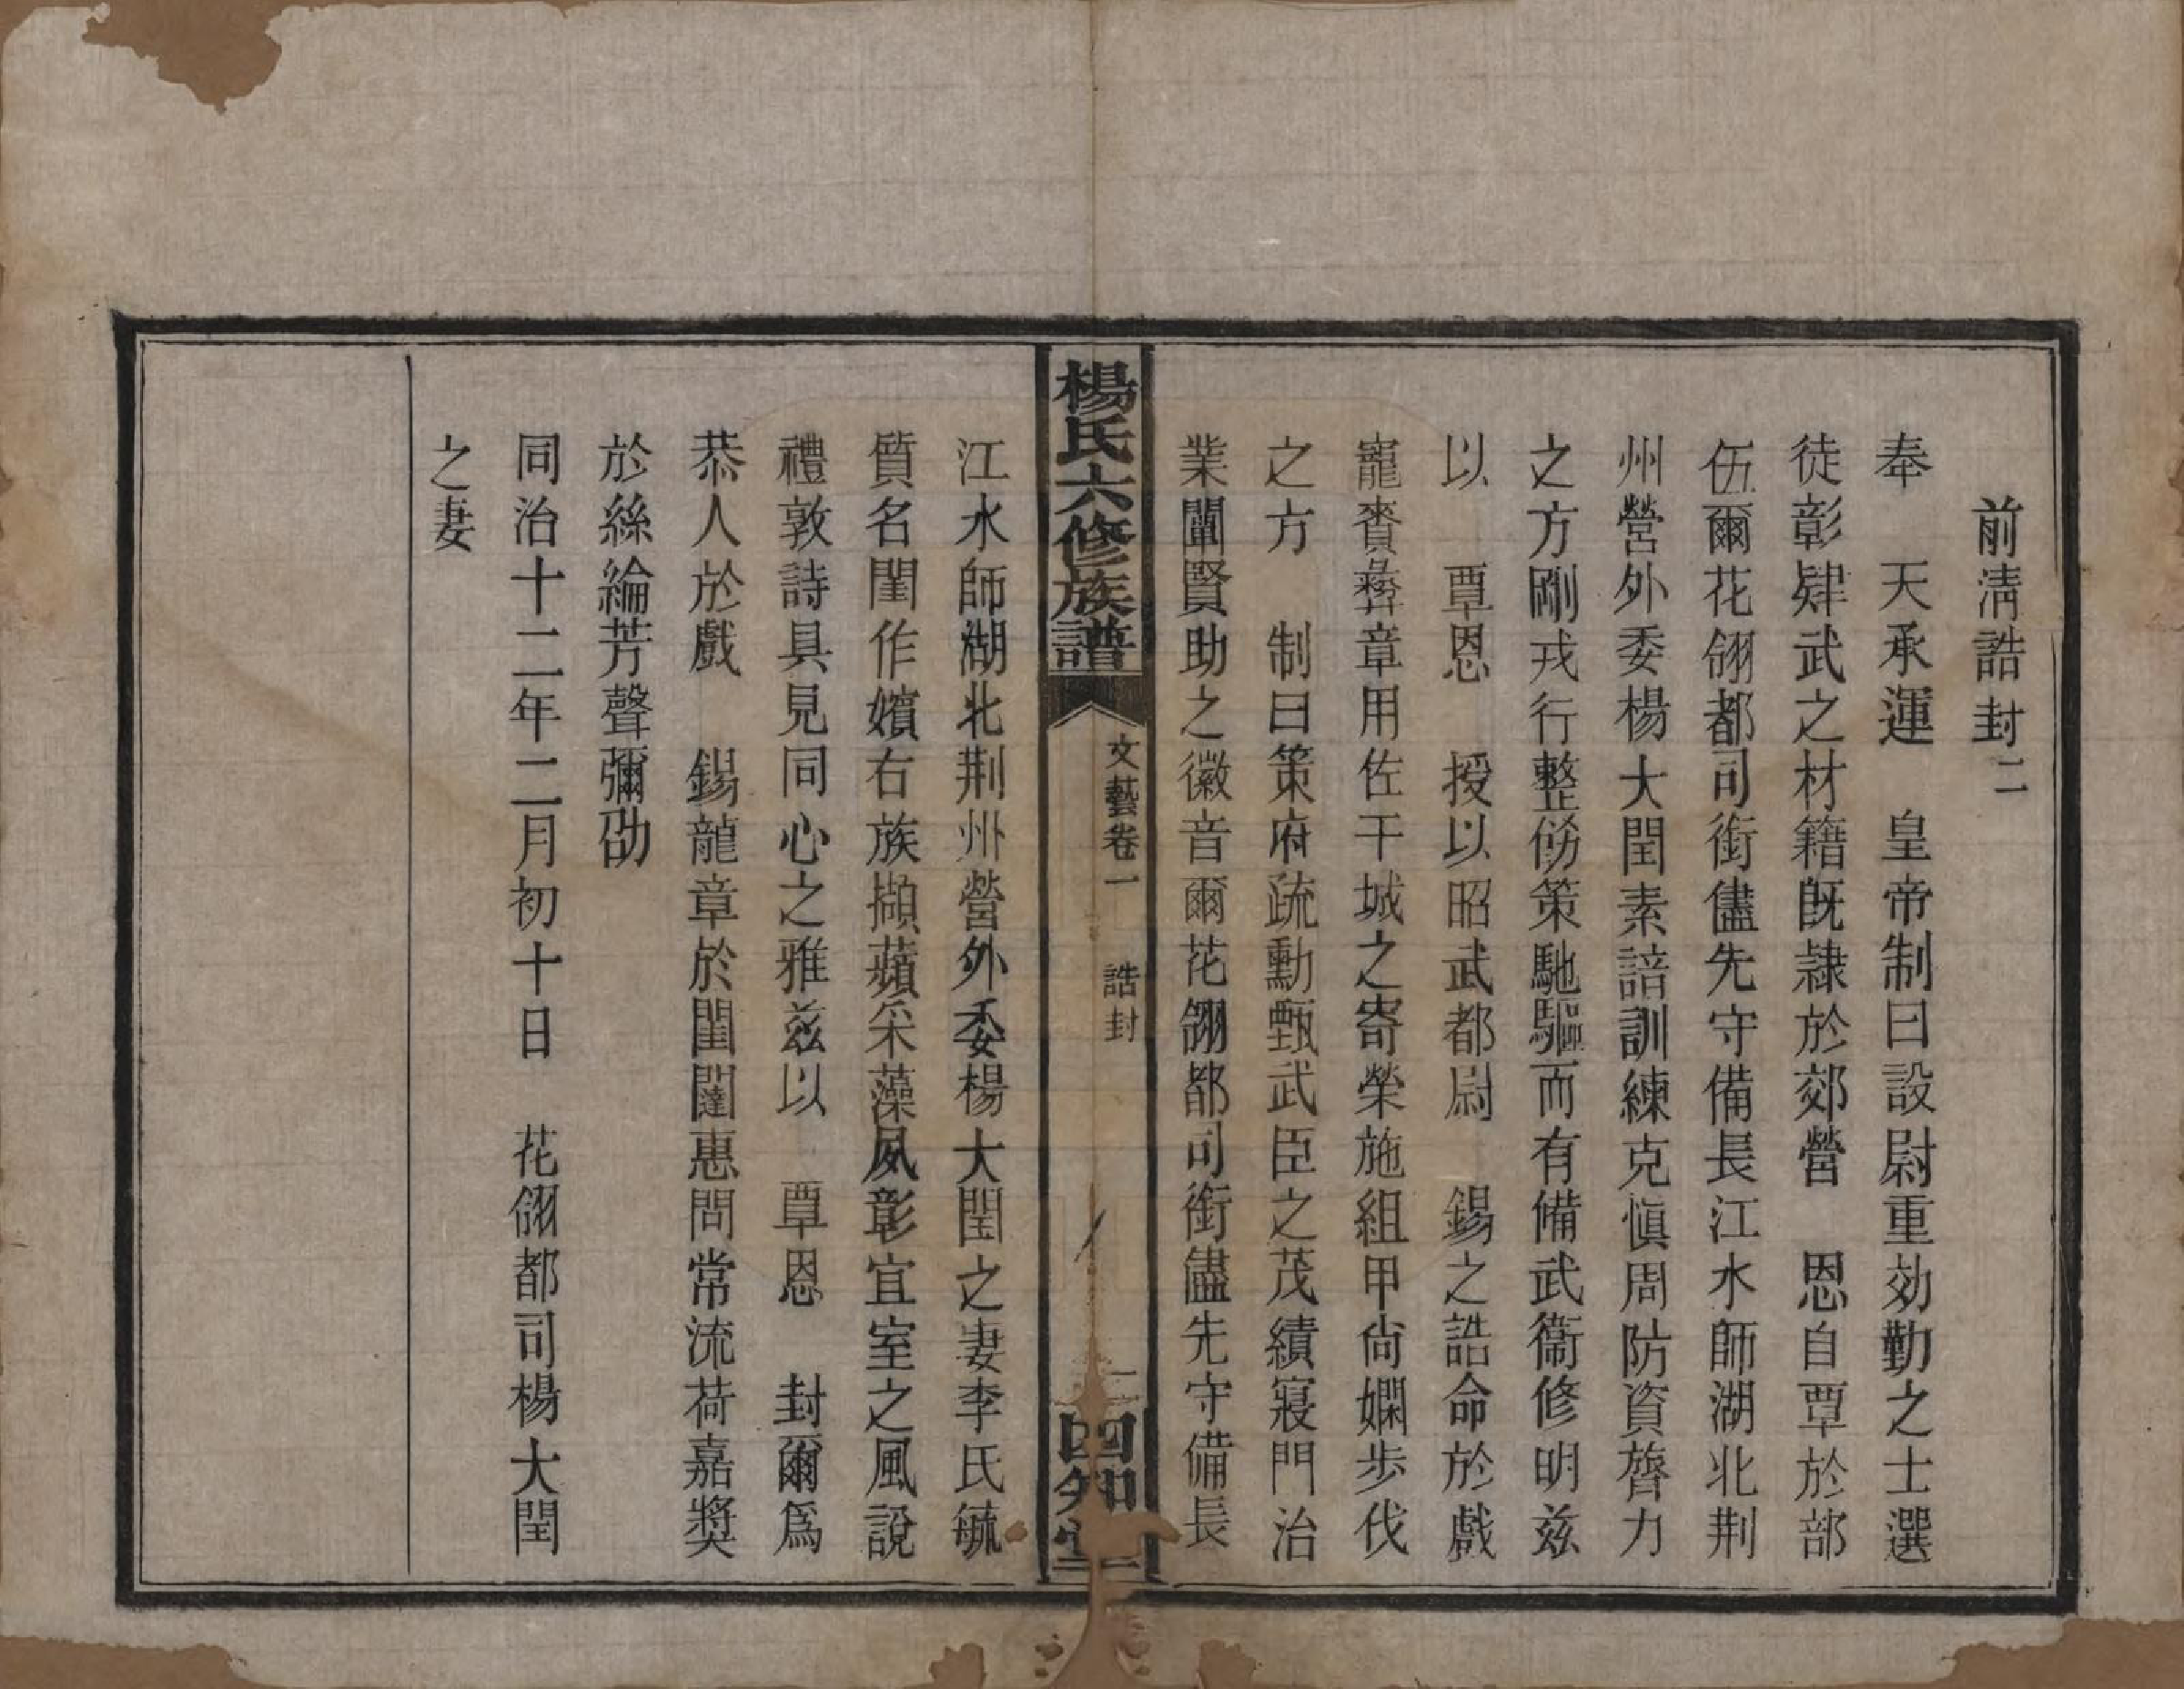 前淸誥封二
奉　天承運　皇帝制曰設尉重効勤之士選
徒彰肄武之材籍旣隷於郊營　恩自覃於部
伍爾花翎都司銜儘先守備長江水師湖北荆
州營外委楊大閏素諳訓練克愼周防資膂力
之方剛戎行整俻策馳驅而有備武衞修明兹
以　覃恩　授以昭武都尉　錫之誥命於戲
寵賚彝章用佐干城之寄榮施組甲尙嫻步伐
之方　制曰策府疏勳甄武臣之茂績寢門治
業闡賢助之徽音爾花翎都司銜儘先守備長
楊氏六修族譜
文藝卷一　誥封
四知堂
江水師湖北荆州營外委楊大閏之妻李氏毓
質名閨作嬪右族擷蘋采藻夙彰宜室之風說
禮敦詩具見同心之雅兹以　覃恩　封爾爲
恭人於戲　錫龍章於閨闥惠問常流荷嘉獎
於絲綸芳聲彌劭
同治十二年二月初十日　花翎都司楊大閏
之妻